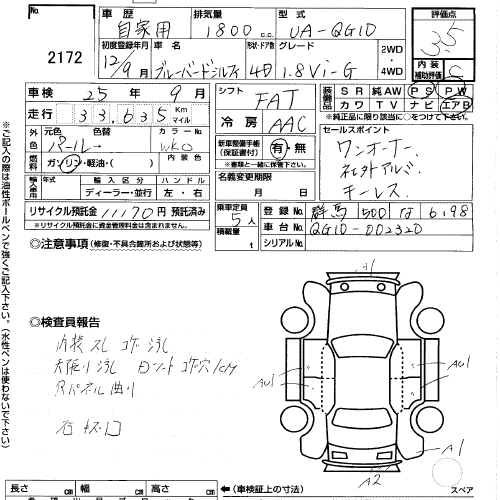 No.
2172
車歴
自家用
排気量
1800 c.c.
型式
UA-QG10
評価点
3.5
初度登録年月
12/9月
車名
ブルーバードシルフィ
形状・ドア数
4D
グレード
1.8Vi-G
2WD
・
4WD
内装
補助評価
車検
25年 9月
シフト
FAT
装備品
SR 純AW PS PW
カワ TV ナビ エアB
※純正品に限り該当に○をつけて下さい
走行
33,635
Km
マイル
冷房
AAC
外色
元色
パール
色替
カラーNo
WK0
新車整備手帳
(保証書付)
有・無
※書類と一緒に保管下さい。
セールスポイント
ワンオーナー
社外アルミ
キーレス
燃料
ガソリン・軽油・( )
内装色
輸入車用
輸入区分
ディーラー・並行
ハンドル
左・右
名義変更期限
月 日
リサイクル預託金 11170円 預託済み
※リサイクル預託金に資金管理料金は含まれておりません。
乗車定員
5人
積載量
t
登録No
群馬 500 は 6198
車台No
QG10-002320
シリアルNo
◎注意事項(修復・不具合箇所および状態等)
◎検査員報告
内装スレ コゲ 汚れ
天張り汚れ
Rパネル曲り
AU1
AU1
A1
A2
スペア
長さ cm
幅 cm
高さ cm
(車検証上の寸法)
※ご記入の際は油性ボールペンで強くご記入下さい。(水性ペンは使わないで下さい)